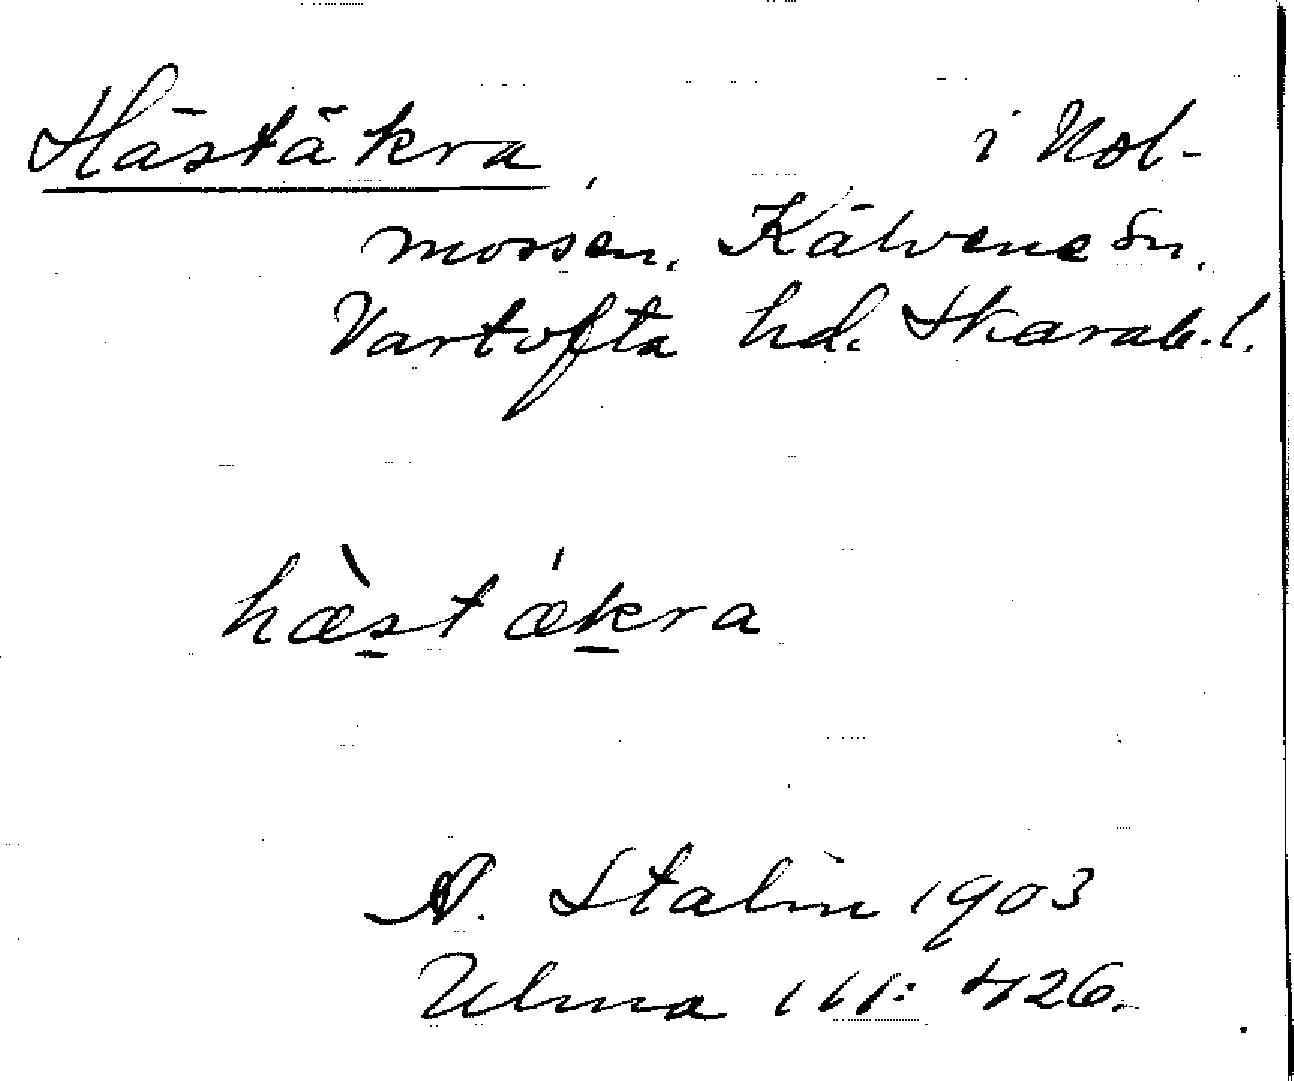 Hästäkra, i Nol-
mossen. Kälvene sn.
Vartofta hd. Skarab.l.
hæ̀stǽkra
A. Stalin 1903
Ulma 111: 426.